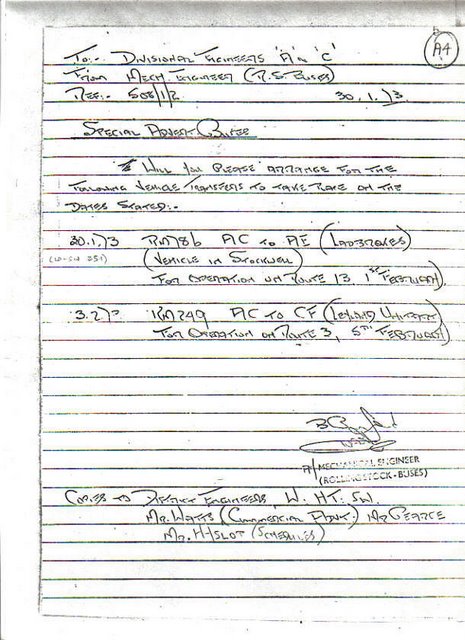 A4
To:- Divisional Engineers 'A' & 'C'
From Mech. Engineer (R.S. Buses)
Ref:- 508/1/2 30.1.73
Special Advert Buses
Will you please arrange for the
following vehicle transfers to take place on the
dates stated:-
30.1.73 RM786 AC to AE (Ladbrokes)
(Vehicle in Stockwell)
For operation on Route 13, 1st February.
3.2.73 RM249 AC to CF (Leyland Uniterne)
For operation on Route 3, 5th February)
MECHANICAL ENGINEER
(ROLLING STOCK - BUSES)
Copies to District Engineers, W. HT. SW.
Mr. Watts (Commercial Advt.) Mr Pearce
Mr. Hislot (Schedules)